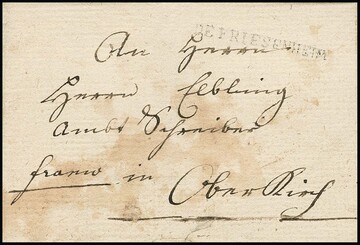 DE FRIESENHEIM
An Herrn
Herrn Elbling
Ambt Schreiber
franco in
OberKirch